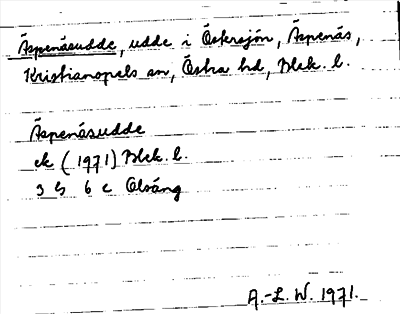 Äspenäsudde, udde i Öskesjön, Äspenäs,
Kristianopels sn, Östra hd, Blek. l.
Äspenäsudde
ek (1971) Blek. l.
3 G 6 c Olsäng
A.-L. W. 1971.